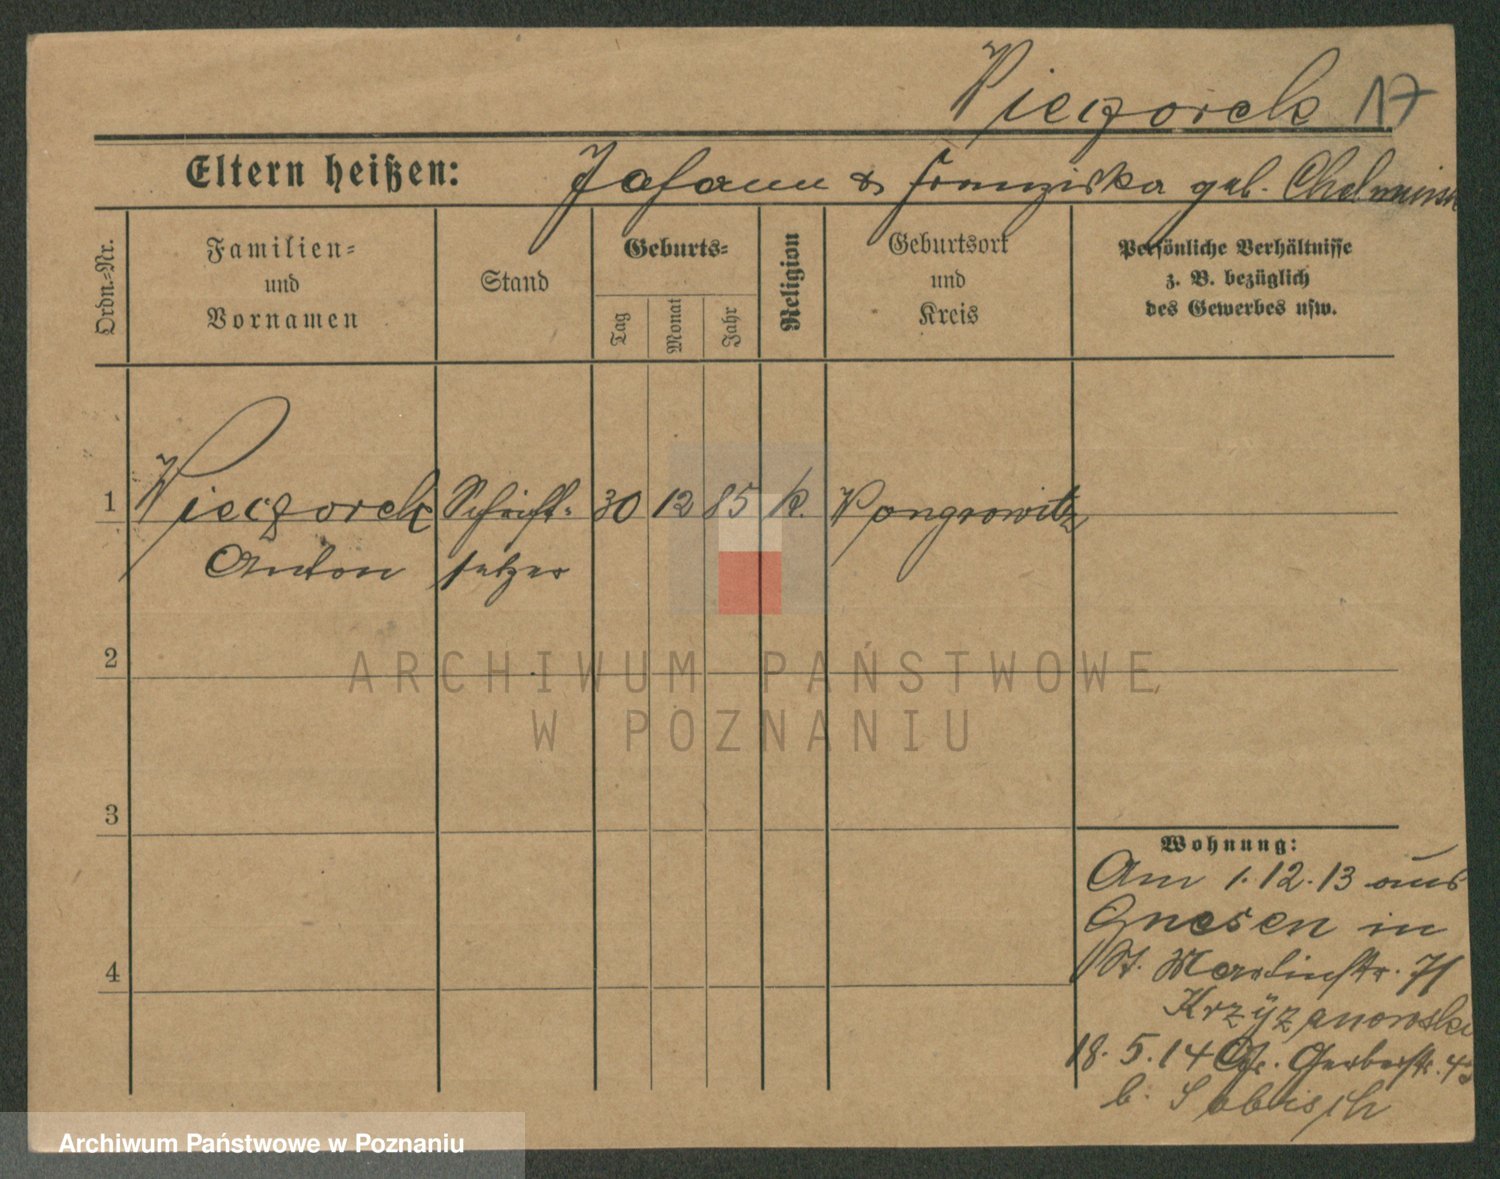 Pieczorek 17
Eltern heißen: Johann & Franziska geb. Chelminsk
Ordn.-Nr.
Familien-
und
Vornamen
Stand
Geburts-
Tag
Monat
Jahr
Religion
Geburtsort
und
Kreis
Persönliche Verhältnisse
z. B. bezüglich
des Gewerbes usw.
1 Pieczorek Schrift- 30 12 85 k. Wongrowitz
Anton setzer
2
3
4
Wohnung:
Am 1.12.13 aus
Gnesen in
St. Martinstr. 71
Krzyzanowski
18.5.14 Gr. Gerberstr. 43
b.
ARCHIWUM PAŃSTWOWE
W POZNANIU
Archiwum Państwowe w Poznaniu